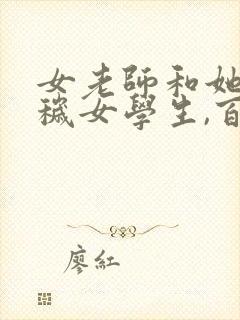 女老師和她
穢女學生,百
廖紅